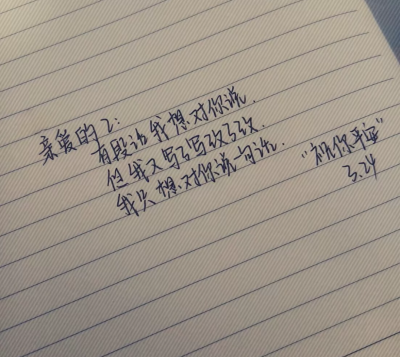 亲爱的Z:
有段话我想对你说.
但我又写了写改了改.
我只想对你说一句话.
"祝你平安"
3.24